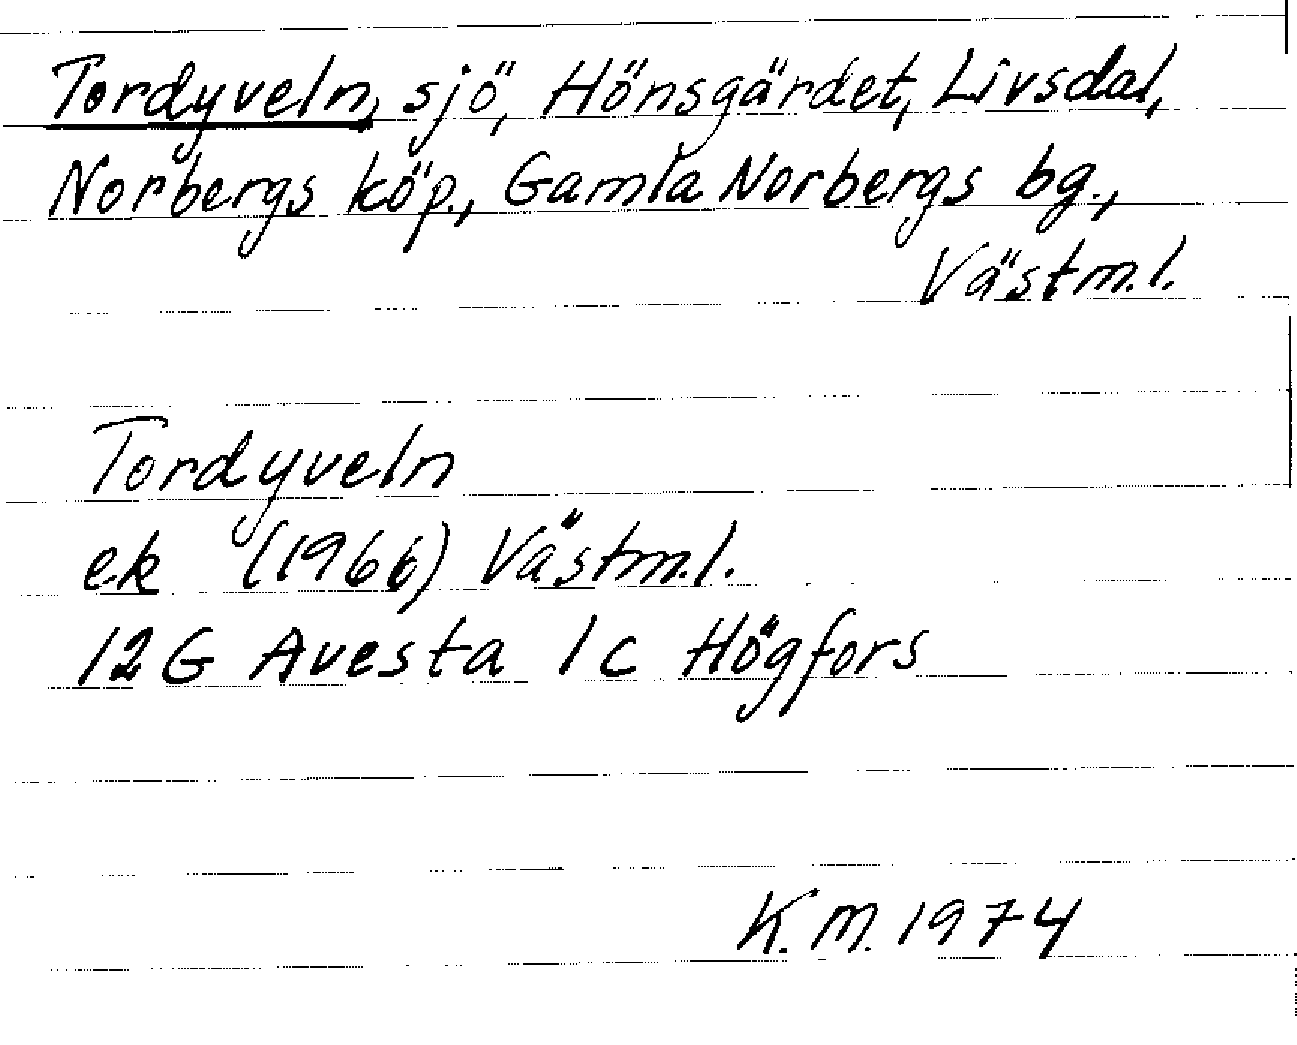 Tordyveln, sjö, Hönsgärdet, Livsdal,
Norbergs köp., Gamla Norbergs bg.,
Västm.l.
Tordyveln
ek (1966) Västm.l.
12G Avesta 1c Högfors
K.M. 1974